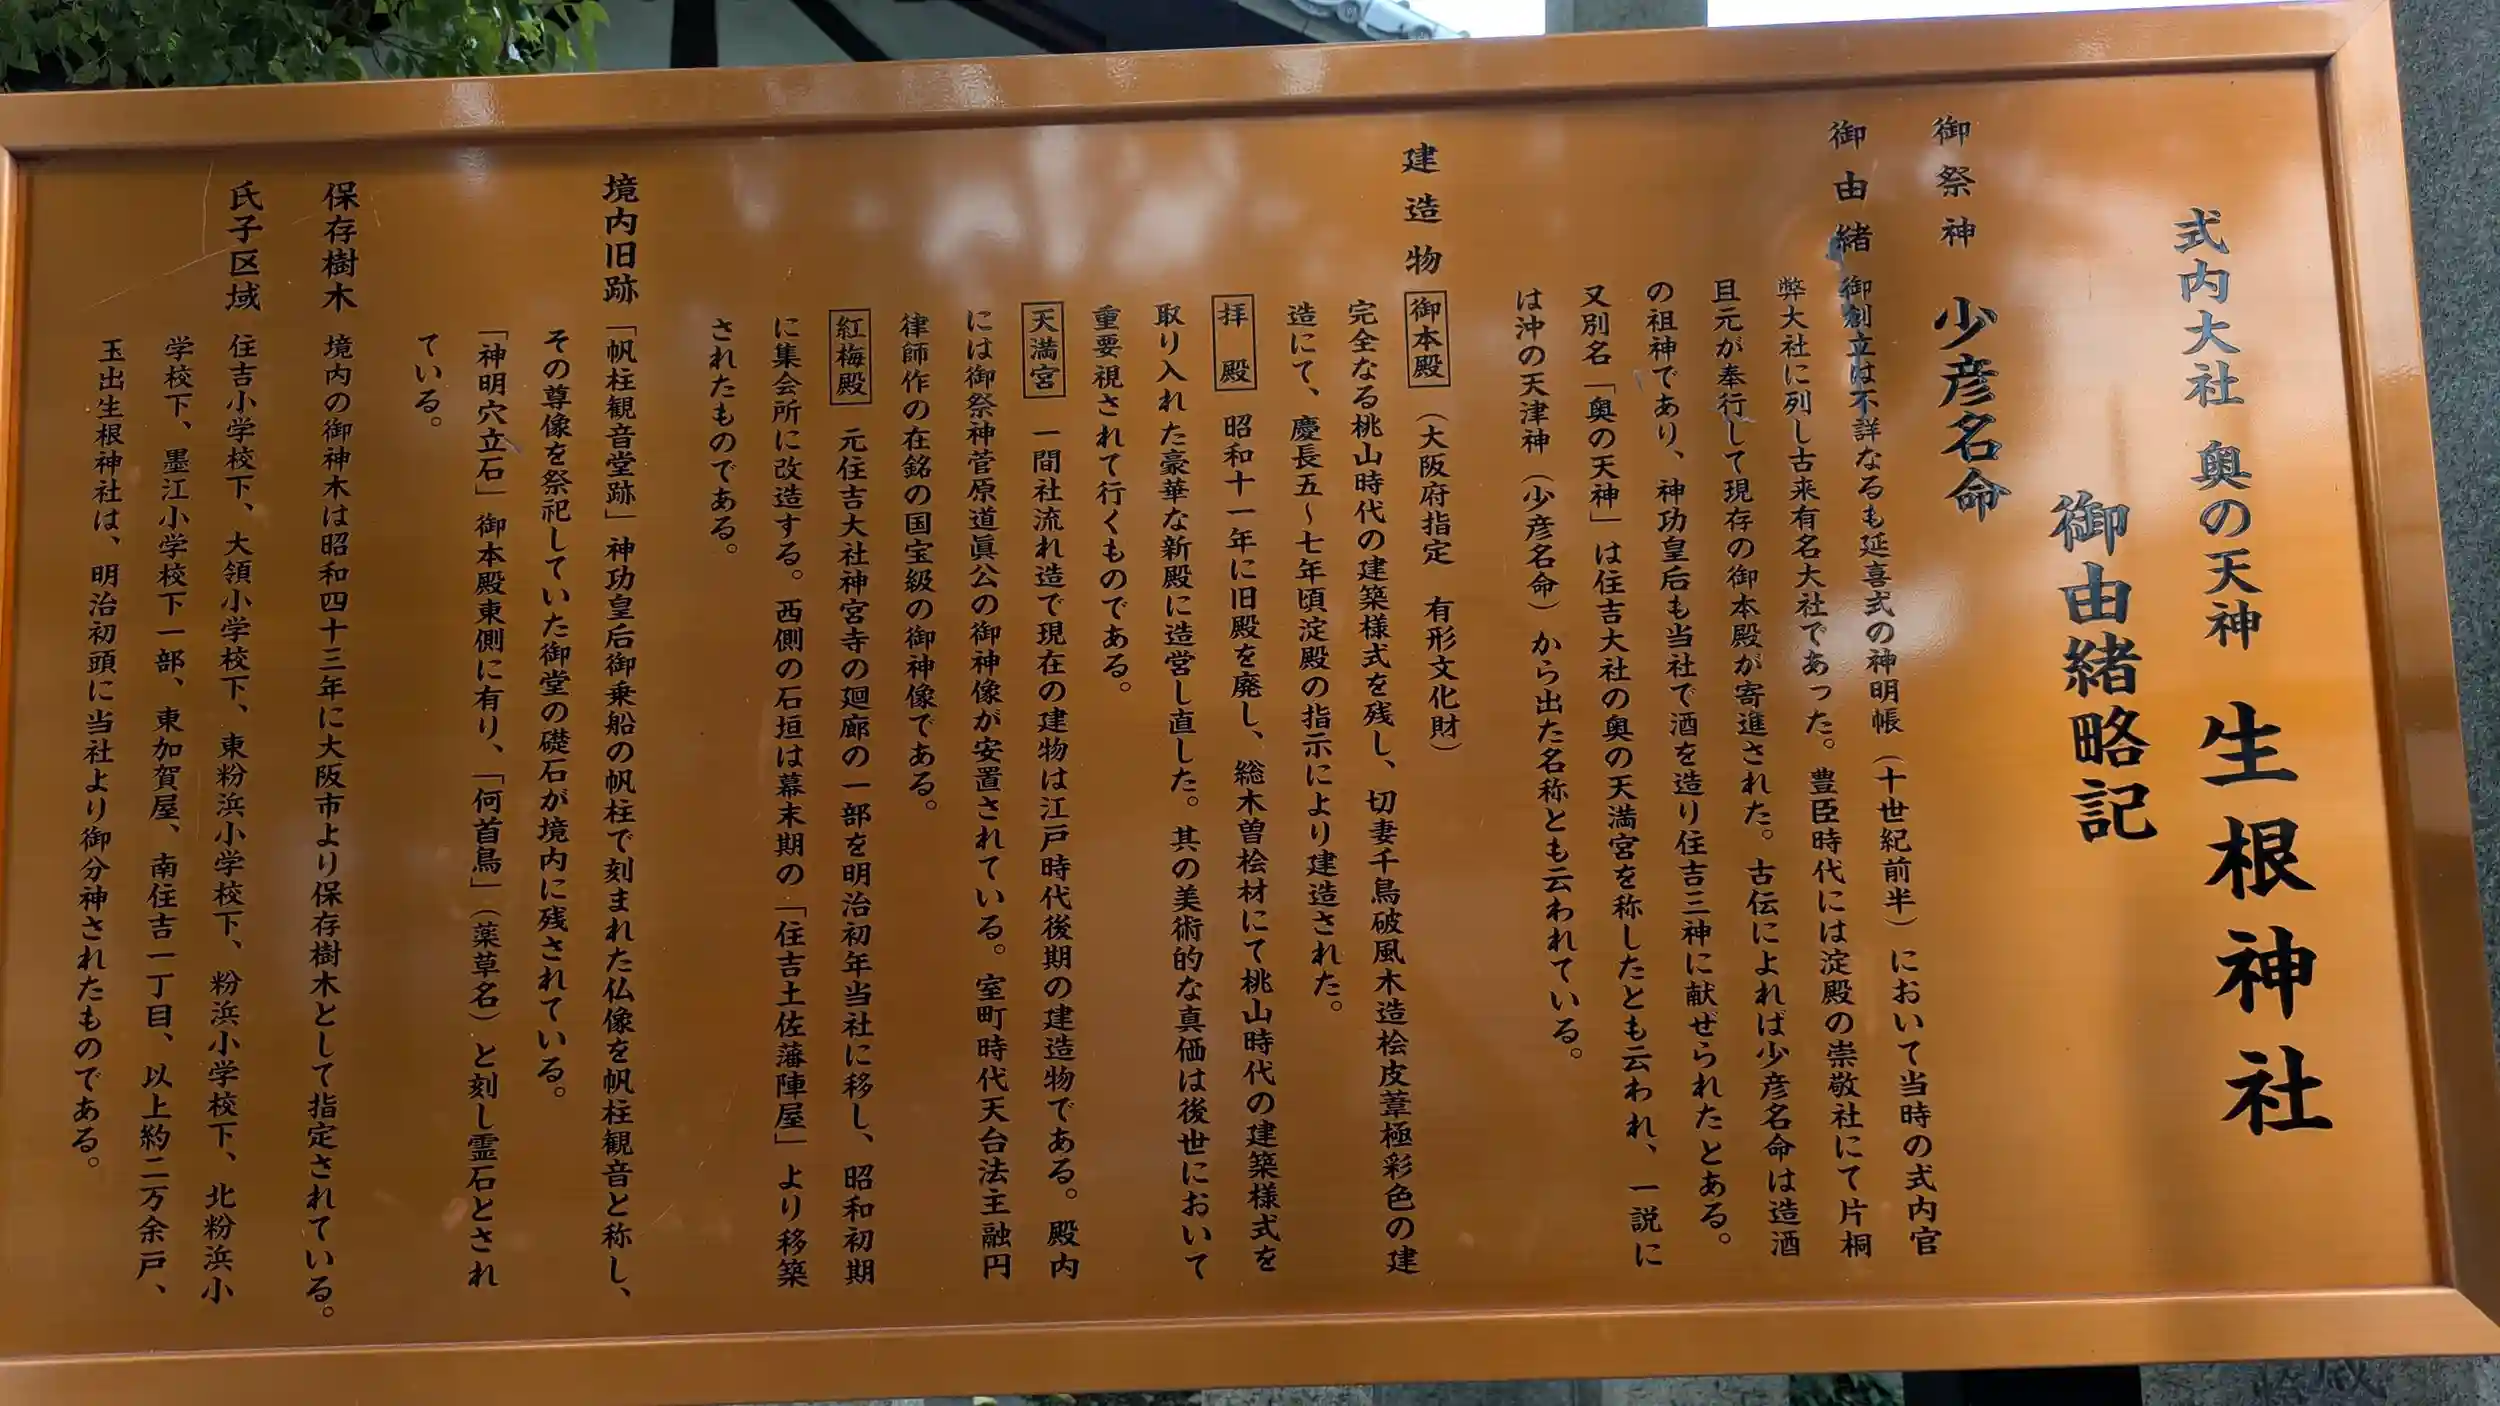 式内大社 奥の天神 生根神社
御由緒略記
御祭神 少彦名命
御由緒 御創立は不詳なるも延喜式の神明帳（十世紀前半）において当時の式内官
弊大社に列し古来有名大社であった。豊臣時代には淀殿の崇敬社にて片桐
且元が奉行して現存の御本殿が寄進された。古伝によれば少彦名命は造酒
の祖神であり、神功皇后も当社で酒を造り住吉三神に献ぜられたとある。
又別名「奥の天神」は住吉大社の奥の天満宮を称したとも云われ、一説に
は沖の天津神（少彦名命）から出た名称とも云われている。
建造物 御本殿（大阪府指定 有形文化財）
完全なる桃山時代の建築様式を残し、切妻千鳥破風木造桧皮葺極彩色の建
造にて、慶長五～七年頃淀殿の指示により建造された。
拝殿 昭和十一年に旧殿を廃し、総木曽桧材にて桃山時代の建築様式を
取り入れた豪華な新殿に造営し直した。其の美術的な真価は後世において
重要視されて行くものである。
天満宮 一間社流れ造で現在の建物は江戸時代後期の建造物である。殿内
には御祭神菅原道眞公の御神像が安置されている。室町時代天台法主融円
律師作の在銘の国宝級の御神像である。
紅梅殿 元住吉大社神宮寺の廻廊の一部を明治初年当社に移し、昭和初期
に集会所に改造する。西側の石垣は幕末期の「住吉土佐藩陣屋」より移築
されたものである。
境内旧跡 「帆柱観音堂跡」神功皇后御乗船の帆柱で刻まれた仏像を帆柱観音と称し、
その尊像を祭祀していた御堂の礎石が境内に残されている。
「神明穴立石」御本殿東側に有り、「何首烏」（薬草名）と刻し霊石とされ
ている。
保存樹木 境内の御神木は昭和四十三年に大阪市より保存樹木として指定されている。
氏子区域 住吉小学校下、大領小学校下、東粉浜小学校下、粉浜小学校下、北粉浜小
学校下、墨江小学校下一部、東加賀屋、南住吉一丁目、以上約二万余戸、
玉出生根神社は、明治初頭に当社より御分神されたものである。